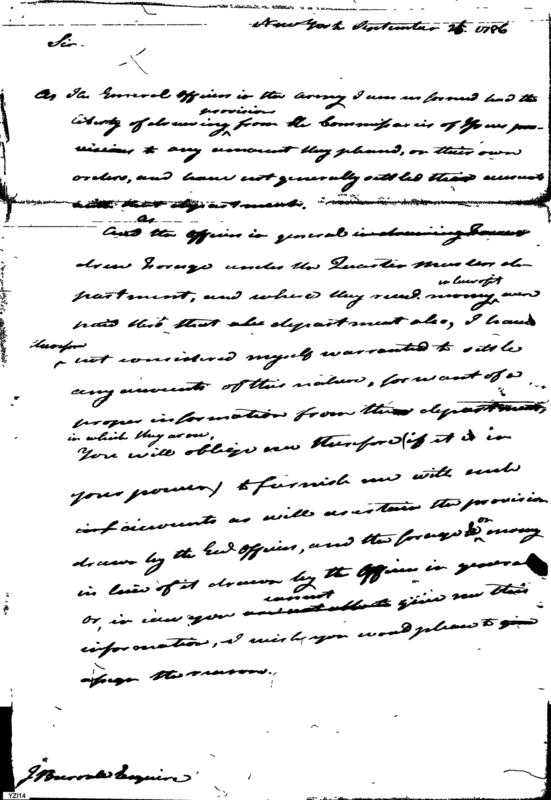 New York September 26 1786
Sir.
As the General Officers in the army I am informed had the
provisions
liberty of drawing from the Commissaries of Issues pro-
visions to any amount they pleased, on their own
orders, and have not generally settled their accounts
with that department.
as
And the Officers in general in drawing
drew Forage under the Quarter Masters de-
in lieu of it
partment, and where they recd. money, were
paid this that also department also, I have
therefore
not considered myself warranted to settle
any accounts of this nature, for want of a
proper information from the department,
in which they arose,
You will oblige me therefore (if it is in
your power) to furnish me with such
accounts as will ascertain the provision
drawn by the Genl. Officers, and the forage or money
in lieu of it drawn by the Officers in general
cannot
or, in case you are not able to give me this
information, I wish you would please to give
assign the reason.
J Burrall Esquire
YZI14